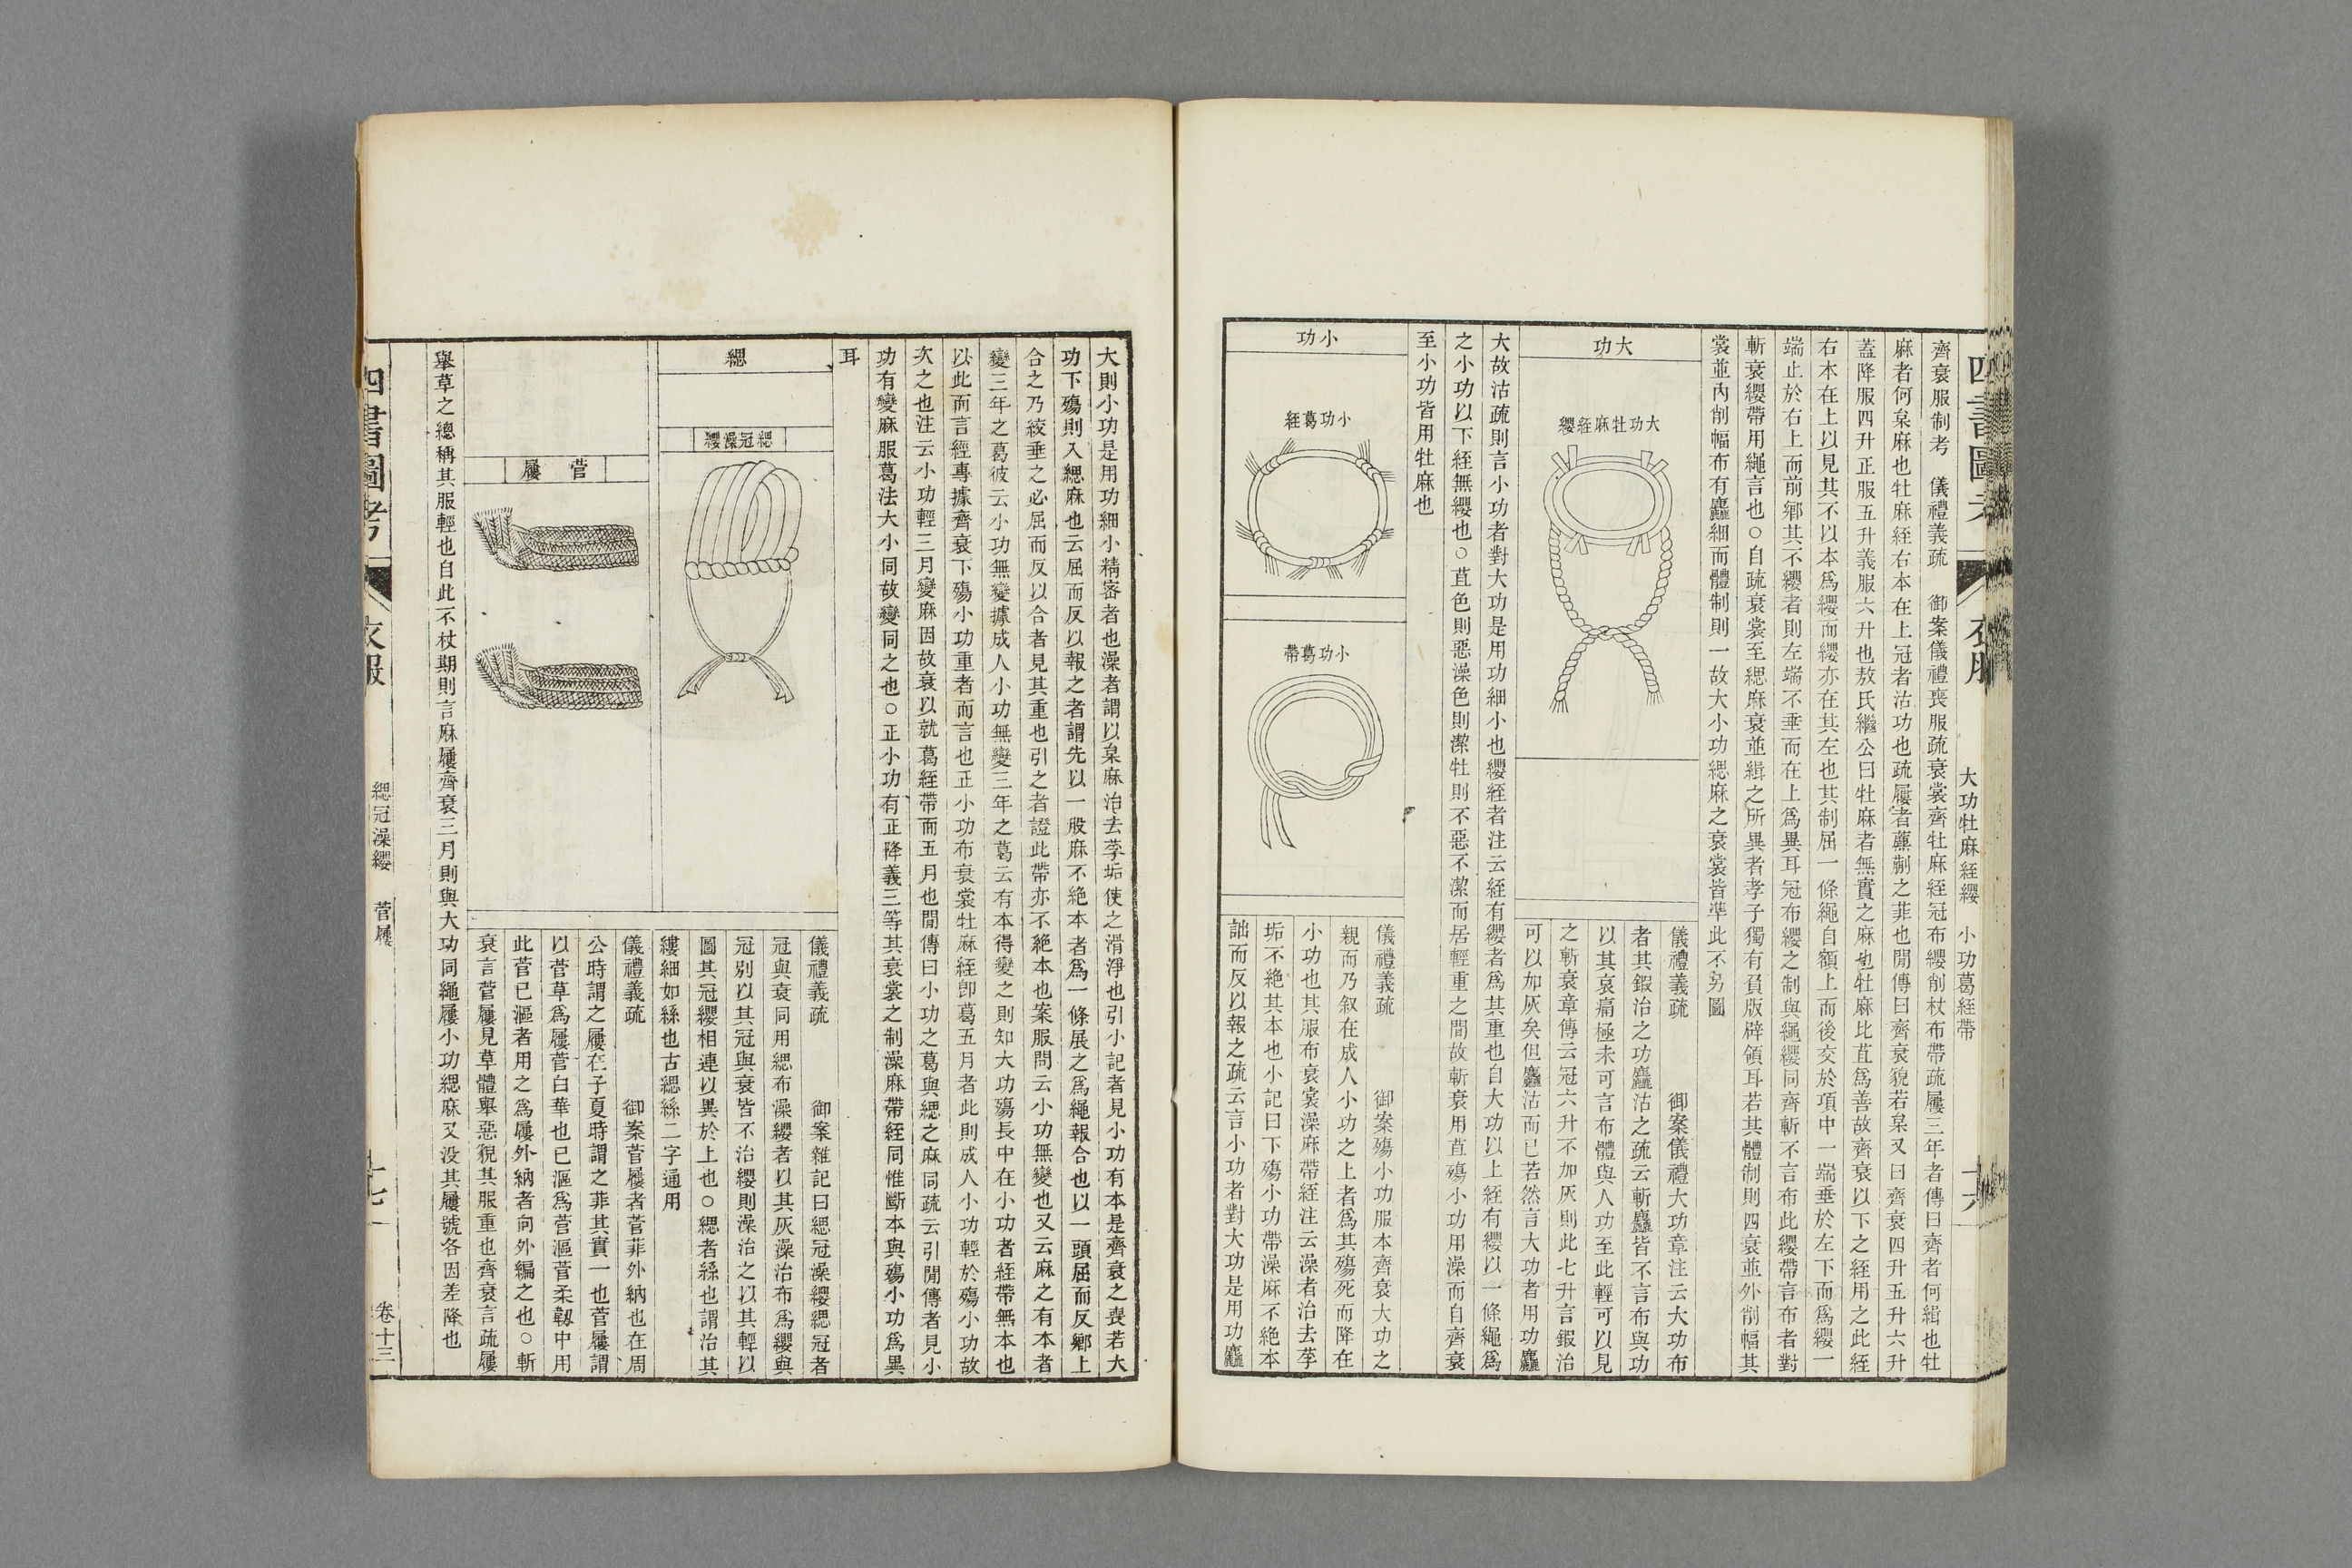 四書圖考
衣服
大功牡麻絰纓　小功葛絰帶
十六
齊衰服制考　儀禮義疏　御案儀禮喪服疏衰裳齊牡麻絰冠布纓削杖布帶疏屨三年者傳曰齊者何緝也牡
麻者何枲麻也牡麻絰右本在上冠者沽功也疏屨者藨蒯之菲也閒傳曰齊衰貌若枲又曰齊衰四升五升六升
蓋降服四升正服五升義服六升也敖氏繼公曰牡麻者無實之麻也牡麻比苴爲善故齊衰以下之絰用之此絰
右本在上以見其不以本爲纓而纓亦在其左也其制屈一條繩自額上而後交於項中一端垂於左下而爲纓一
端止於右上而前鄉其不纓者則左端不垂而在上爲異耳冠布纓之制與繩纓同齊斬不言布此纓帶言布者對
斬衰纓帶用繩言也○自疏衰裳至緦麻衰並緝之所異者孝子獨有負版辟領耳若其體制則四衰並外削幅其
裳並內削幅布有麤細而體制則一故大小功緦麻之衰裳皆準此不另圖
大功
大功牡麻絰纓
儀禮義疏　御案儀禮大功章注云大功布
者其鍛治之功麤沽之疏云斬麤皆不言布與功
以其哀痛極未可言布體與人功至此輕可以見
之斬衰章傳云冠六升不加灰則此七升言鍛治
可以加灰矣但麤沽而已若然言大功者用功麤
大故沽疏則言小功者對大功是用功細小也纓絰者注云絰有纓者爲其重也自大功以上絰有纓以一條繩爲
之小功以下絰無纓也○苴色則惡澡色則潔牡則不惡不潔而居輕重之間故斬衰用苴殤小功用澡而自齊衰
至小功皆用牡麻也
小功
小功葛絰
小功葛帶
儀禮義疏　御案殤小功服本齊衰大功之
親而乃叙在成人小功之上者爲其殤死而降在
小功也其服布衰裳澡麻帶絰注云澡者治去莩
垢不絶其本也小記曰下殤小功帶澡麻不絶本
詘而反以報之疏云言小功者對大功是用功麤
大則小功是用功細小精密者也澡者謂以枲麻治去莩垢使之滑淨也引小記者見小功有本是齊衰之喪若大
功下殤則入緦麻也云屈而反以報之者謂先以一股麻不絶本者爲一條展之爲繩報合也以一頭屈而反鄉上
合之乃絞垂之必屈而反以合者見其重也引之者證此帶亦不絶本也案服問云小功無變也又云麻之有本者
變三年之葛彼云小功無變據成人小功無變三年之葛云有本得變之則知大功殤長中在小功者絰帶無本也
以此而言經專據齊衰下殤小功重者而言也正小功布衰裳牡麻絰卽葛五月者此則成人小功輕於殤小功故
次之也注云小功輕三月變麻因故衰以就葛絰帶而五月也閒傳曰小功之葛與緦之麻同疏云引閒傳者見小
功有變麻服葛法大小同故變同之也○正小功有正降義三等其衰裳之制澡麻帶絰同惟斷本與殤小功爲異
耳
緦
緦冠澡纓
儀禮義疏　御案雜記曰緦冠澡纓緦冠者
冠與衰同用緦布澡纓者以其灰澡治布爲纓與
冠別以其冠與衰皆不治纓則澡治之以其輕以
圖其冠纓相連以異於上也○緦者絲也謂治其
縷細如絲也古緦絲二字通用
菅屨
儀禮義疏　御案菅屨者菅菲外納也在周
公時謂之屨在子夏時謂之菲其實一也菅屨謂
以菅草爲屨菅白華也已漚爲菅漚菅柔韌中用
此菅已漚者用之爲屨外納者向外編之也○斬
衰言菅屨見草體舉惡貌其服重也齊衰言疏屨
舉草之總稱其服輕也自此不杖期則言麻屨齊衰三月則與大功同繩屨小功緦麻又没其屨號各因差降也
四書圖考
衣服
緦冠澡纓　菅屨
十七
卷十三